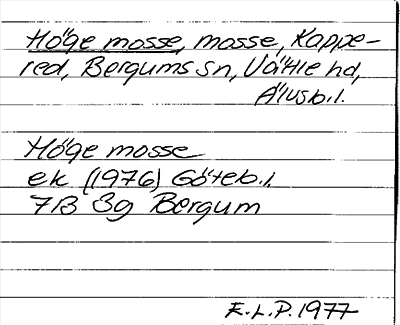 Höge mosse, mosse, Kappe-
red, Bergums sn, Vättle hd,
Älvsb.l.
Höge mosse
ek (1976) Göteb.l.
7B 3g Bergum
E.L.P. 1977